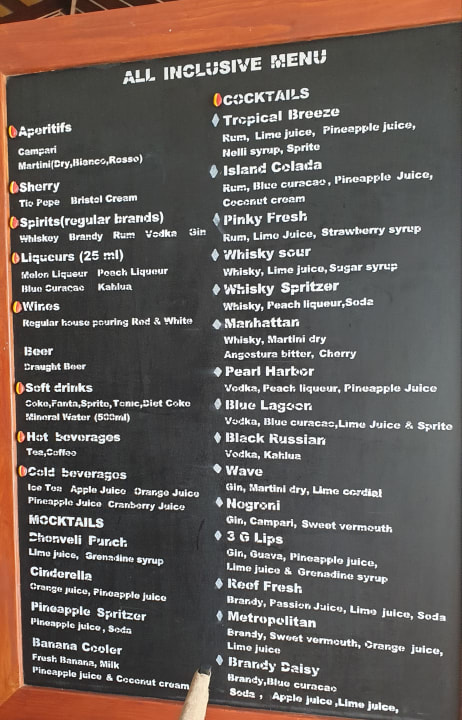 ALL INCLUSIVE MENU
Aperitifs
Campari
Martini(Dry,Bianco,Rosso)
Sherry
Tio Pepe Bristol Cream
Spirits(regular brands)
Whiskey Brandy Rum Vodka Gin
Liqueurs (25 ml)
Melon Liqueur Peach Liqueur
Blue Curacao Kahlua
Wines
Regular house pouring Red & White
Beer
Draught Beer
Soft drinks
Coke,Fanta,Sprite,Tonic,Diet Coke
Mineral Water (500ml)
Hot beverages
Tea,Coffee
Cold beverages
Ice Tea Apple Juice Orange Juice
Pineapple Juice Cranberry Juice
MOCKTAILS
Dhonveli Punch
Lime juice, Grenadine syrup
Cinderella
Orange juice, Pineapple juice
Pineapple Spritzer
Pineapple juice, Soda
Banana Cooler
Fresh Banana, Milk
Pineapple juice & Coconut cream
COCKTAILS
Tropical Breeze
Rum, Lime juice, Pineapple juice,
Nelli syrup, Sprite
Island Colada
Rum, Blue curacao, Pineapple Juice,
Coconut cream
Pinky Fresh
Rum, Lime Juice, Strawberry syrup
Whisky sour
Whisky, Lime juice,Sugar syrup
Whisky Spritzer
Whisky, Peach liqueur,Soda
Manhattan
Whisky, Martini dry
Angostura bitter, Cherry
Pearl Harbor
Vodka, Peach liqueur, Pineapple Juice
Blue Lagoon
Vodka, Blue curacao,Lime Juice & Sprite
Black Russian
Vodka, Kahlua
Wave
Gin, Martini dry, Lime cordial
Negroni
Gin, Campari, Sweet vermouth
3 G Lips
Gin, Guava, Pineapple juice,
Lime juice & Grenadine syrup
Reef Fresh
Brandy, Passion Juice, Lime juice, Soda
Metropolitan
Brandy, Sweet vermouth, Orange juice,
Lime juice
Brandy Daisy
Brandy,Blue curacao
Soda , Apple juice ,Lime juice,